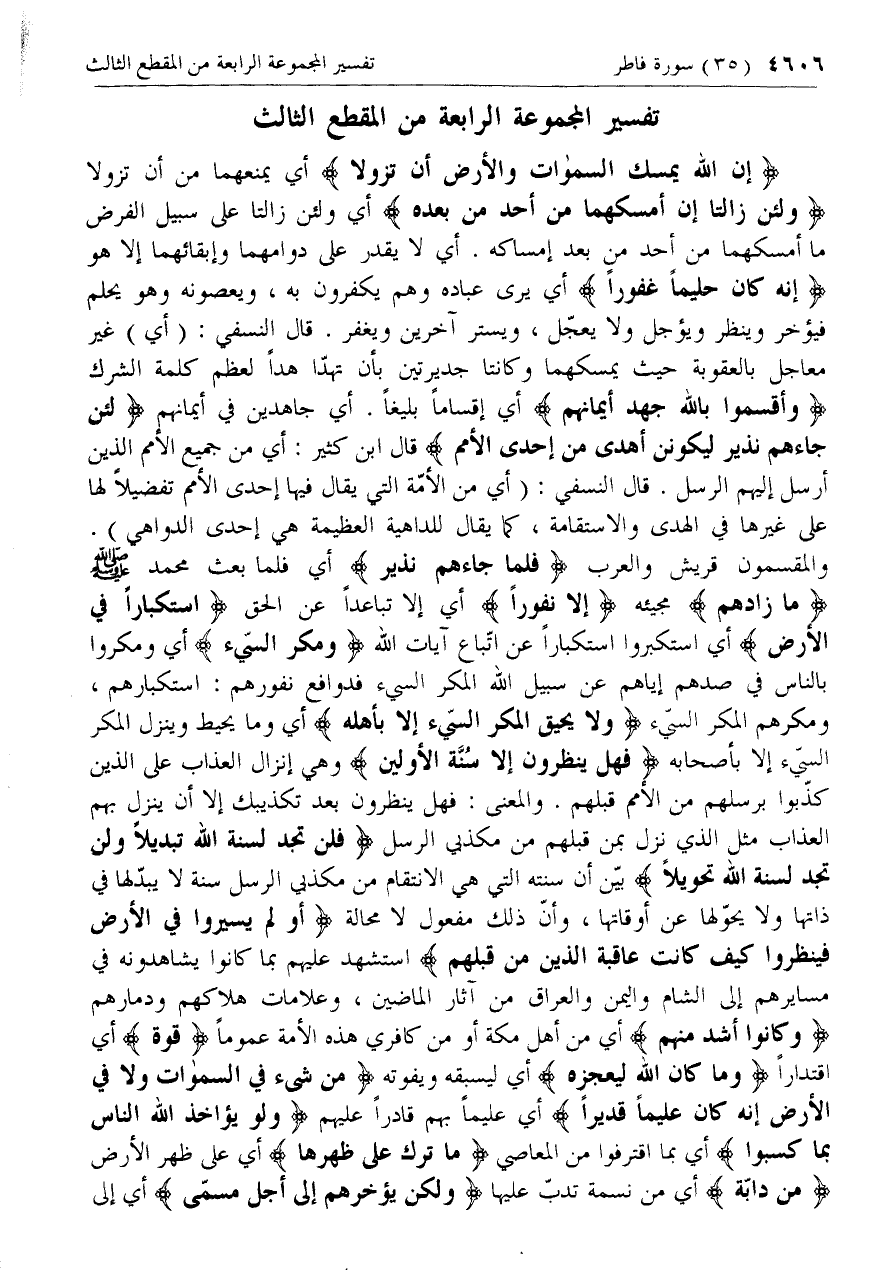 ٤٦٠٦ (٣٥) سورة فاطر تفسير المجموعة الرابعة من المقطع الثالث
تفسير المجموعة الرابعة من المقطع الثالث
﴿ إن الله يمسك السمٰوات والأرض أن تزولا ﴾ أي يمنعهما من أن تزولا
﴿ ولئن زالتا إن أمسكهما من أحد من بعده ﴾ أي ولئن زالتا على سبيل الفرض
ما أمسكهما من أحد من بعد إمساكه . أي لا يقدر على دوامهما وإبقائهما إلا هو
﴿ إنه كان حليماً غفوراً ﴾ أي يرى عباده وهم يكفرون به ، ويعصونه وهو يحلم
فيؤخر وينظر ويؤجل ولا يعجّل ، ويستر آخرين ويغفر . قال النسفي : ( أي ) غير
معاجل بالعقوبة حيث يمسكهما وكانتا جديرتين بأن تهدّا هداً لعظم كلمة الشرك
﴿ وأقسموا بالله جهد أيمانهم ﴾ أي إقساماً بليغاً . أي جاهدين في أيمانهم ﴿ لئن
جاءهم نذير ليكونن أهدى من إحدى الأمم ﴾ قال ابن كثير : أي من جميع الأمم الذين
أرسل إليهم الرسل . قال النسفي : ( أي من الأمّة التي يقال فيها إحدى الأمم تفضيلاً لها
على غيرها في الهدى والاستقامة ، كما يقال للداهية العظيمة هي إحدى الدواهي ) .
والمقسمون قريش والعرب ﴿ فلما جاءهم نذير ﴾ أي فلما بعث محمد ﷺ
﴿ ما زادهم ﴾ مجيئه ﴿ إلا نفوراً ﴾ أي إلا تباعداً عن الحق ﴿ استكباراً في
الأرض ﴾ أي استكبروا استكباراً عن اتّباع آيات الله ﴿ ومكر السيّء ﴾ أي ومكروا
بالناس في صدهم إياهم عن سبيل الله المكر السيء فدوافع نفورهم : استكبارهم ،
ومكرهم المكر السيّء ﴿ ولا يحيق المكر السيّء إلا بأهله ﴾ أي وما يحيط وينزل المكر
السيّء إلا بأصحابه ﴿ فهل ينظرون إلا سُنَّة الأولين ﴾ وهي إنزال العذاب على الذين
كذّبوا برسلهم من الأمم قبلهم . والمعنى : فهل ينظرون بعد تكذيبك إلا أن ينزل بهم
العذاب مثل الذي نزل بمن قبلهم من مكذبي الرسل ﴿ فلن تجد لسنة الله تبديلاً ولن
تجد لسنة الله تحويلاً ﴾ بيّن أن سنته التي هي الانتقام من مكذبي الرسل سنة لا يبدّلها في
ذاتها ولا يحوّلها عن أوقاتها ، وأنّ ذلك مفعول لا محالة ﴿ أو لم يسيروا في الأرض
فينظروا كيف كانت عاقبة الذين من قبلهم ﴾ استشهد عليهم بما كانوا يشاهدونه في
مسايرهم إلى الشام واليمن والعراق من آثار الماضين ، وعلامات هلاكهم ودمارهم
﴿ وكانوا أشد منهم ﴾ أي من أهل مكة أو من كافري هذه الأمة عموماً ﴿ قوة ﴾ أي
اقتداراً ﴿ وما كان الله ليعجزه ﴾ أي ليسبقه ويفوته ﴿ من شيء في السمٰوات ولا في
الأرض إنه كان عليماً قديراً ﴾ أي عليماً بهم قادراً عليهم ﴿ ولو يؤاخذ الله الناس
بما كسبوا ﴾ أي بما اقترفوا من المعاصي ﴿ ما ترك على ظهرها ﴾ أي على ظهر الأرض
﴿ من دابّة ﴾ أي من نسمة تدبّ عليها ﴿ ولكن يؤخرهم إلى أجل مسمّى ﴾ أي إلى